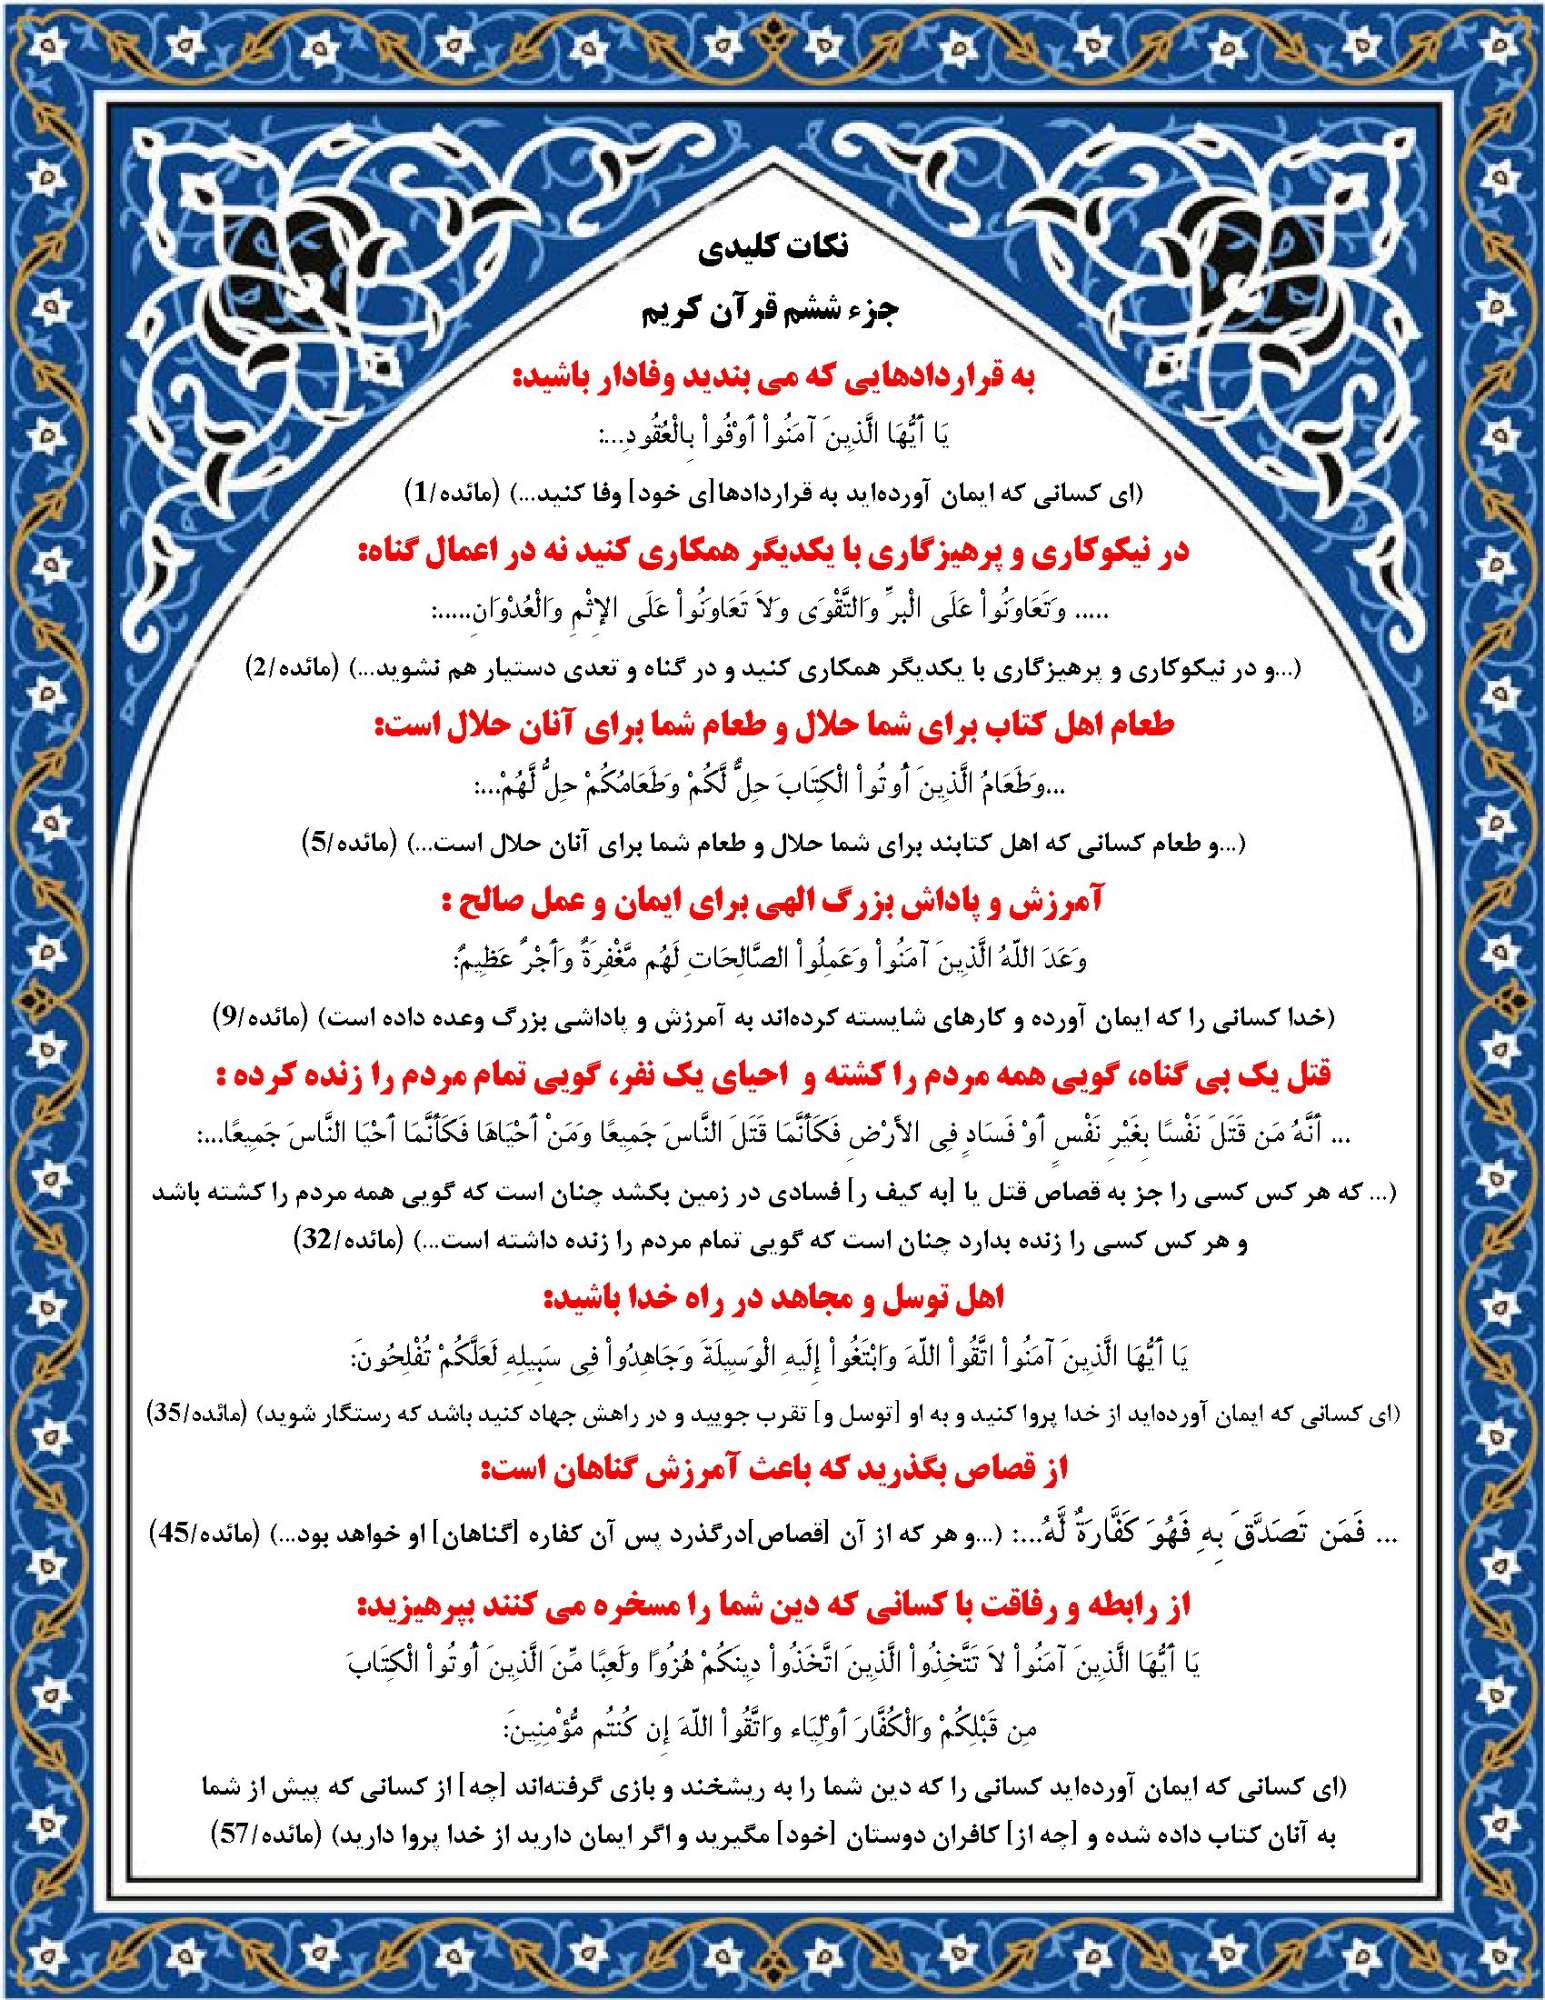 نکات کلیدی
جزء ششم قرآن کریم
به قراردادهایی که می بندید وفادار باشید:
يَا أَيُّهَا الَّذِينَ آمَنُواْ أَوْفُواْ بِالْعُقُودِ...:
(ای کسانی که ایمان آورده‌اید به قراردادها[ی خود] وفا کنید...) (مائده/1)
در نیکوکاری و پرهیزگاری با یکدیگر همکاری کنید نه در اعمال گناه:
..... وَتَعَاوَنُواْ عَلَى الْبرِّ وَالتَّقْوَى وَلاَ تَعَاوَنُواْ عَلَى الإِثْمِ وَالْعُدْوَانِ.....:
(...و در نیکوکاری و پرهیزگاری با یکدیگر همکاری کنید و در گناه و تعدی دستیار هم نشوید...) (مائده/2)
طعام اهل کتاب برای شما حلال و طعام شما برای آنان حلال است:
...وَطَعَامُ الَّذِينَ أُوتُواْ الْكِتَابَ حِلٌّ لَّكُمْ وَطَعَامُكُمْ حِلُّ لَّهُمْ...:
(...و طعام کسانی که اهل کتابند برای شما حلال و طعام شما برای آنان حلال است...) (مائده/5)
آمرزش و پاداش بزرگ الهی برای ایمان و عمل صالح :
وَعَدَ اللّهُ الَّذِينَ آمَنُواْ وَعَمِلُواْ الصَّالِحَاتِ لَهُم مَّغْفِرَةٌ وَأَجْرٌ عَظِيمٌ:
(خدا کسانی را که ایمان آورده و کارهای شایسته کرده‌اند به آمرزش و پاداشی بزرگ وعده داده است) (مائده/9)
قتل یک بی گناه، گویی همه مردم را کشته و احیای یک نفر، گویی تمام مردم را زنده کرده :
... أَنَّهُ مَن قَتَلَ نَفْسًا بِغَيْرِ نَفْسٍ أَوْ فَسَادٍ فِي الأَرْضِ فَكَأَنَّمَا قَتَلَ النَّاسَ جَمِيعًا وَمَنْ أَحْيَاهَا فَكَأَنَّمَا أَحْيَا النَّاسَ جَمِيعًا...:
(... که هر کس کسی را جز به قصاص قتل یا [به کیف ر] فسادی در زمین بکشد چنان است که گویی همه مردم را کشته باشد
و هر کس کسی را زنده بدارد چنان است که گویی تمام مردم را زنده داشته است...) (مائده/32)
اهل توسل و مجاهد در راه خدا باشید:
يَا أَيُّهَا الَّذِينَ آمَنُواْ اتَّقُواْ اللّهَ وَابْتَغُواْ إِلَيهِ الْوَسِيلَةَ وَجَاهِدُواْ فِي سَبِيلِهِ لَعَلَّكُمْ تُفْلِحُونَ:
(ای کسانی که ایمان آورده‌اید از خدا پروا کنید و به او [توسل و] تقرب جویید و در راهش جهاد کنید باشد که رستگار شوید) (مائده/35)
از قصاص بگذرید که باعث آمرزش گناهان است:
... فَمَن تَصَدَّقَ بِهِ فَهُوَ كَفَّارَةٌ لَّهُ...: (...و هر که از آن [قصاص]درگذرد پس آن کفاره [گناهان] او خواهد بود...) (مائده/45)
از رابطه و رفاقت با کسانی که دین شما را مسخره می کنند بپرهیزید:
يَا أَيُّهَا الَّذِينَ آمَنُواْ لاَ تَتَّخِذُواْ الَّذِينَ اتَّخَذُواْ دِينَكُمْ هُزُوًا وَلَعِبًا مِّنَ الَّذِينَ أُوتُواْ الْكِتَابَ
مِن قَبْلِكُمْ وَالْكُفَّارَ أَوْلِيَاء وَاتَّقُواْ اللّهَ إِن كُنتُم مُّؤْمِنِينَ:
(ای کسانی که ایمان آورده‌اید کسانی را که دین شما را به ریشخند و بازی گرفته‌اند [چه] از کسانی که پیش از شما
به آنان کتاب داده شده و [چه از] کافران دوستان [خود] مگیرید و اگر ایمان دارید از خدا پروا دارید) (مائده/57)